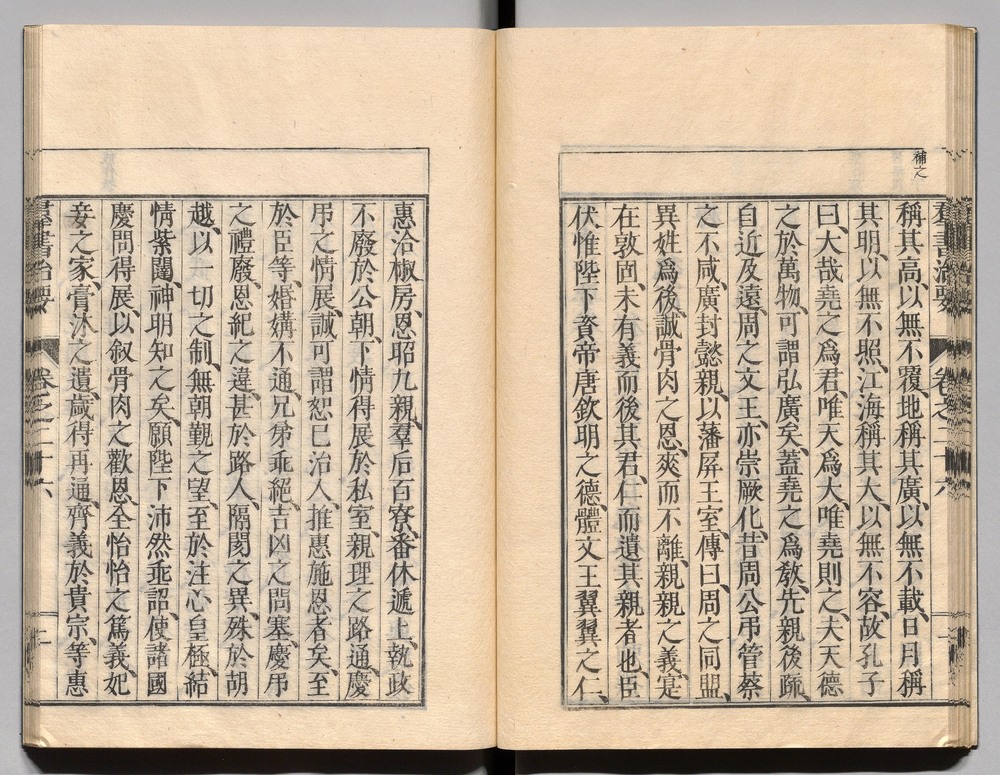 補之
稱其高、以無不覆、地稱其廣、以無不載、日月稱
其明、以無不照、江海稱其大、以無不容、故孔子
曰、大哉堯之爲君、唯天爲大、唯堯則之、夫天德
之於萬物、可謂弘廣矣、蓋堯之爲敎、先親後疏、
自近及遠、周之文王、亦崇厥化、昔周公弔管蔡
之不咸、廣封懿親、以藩屏王室、傳曰、周之同盟、
異姓爲後、誠骨肉之恩、爽而不離、親親之義、寔
在敦固、未有義而後其君、仁而遺其親者也、臣
伏惟陛下資帝唐欽明之德、體文王翼翼之仁、
惠洽椒房、恩昭九親、羣后百寮、番休遞上、執政
不廢於公朝、下情得展於私室、親理之路通、慶
弔之情展、誠可謂恕己治人、推惠施恩者矣、至
於臣等、婚媾不通、兄弟乖絕、吉凶之問塞、慶弔
之禮廢、恩紀之違、甚於路人、隔閡之異、殊於胡
越、以一切之制、無朝覲之望、至於注心皇極、結
情紫闥、神明知之矣、願陛下沛然乖詔、使諸國
慶問得展、以叙骨肉之歡恩、全怡怡之篤義、妃
妾之家、膏沐之遺、歲得再通、齊義於貴宗、等惠
羣書治要 卷之二十六